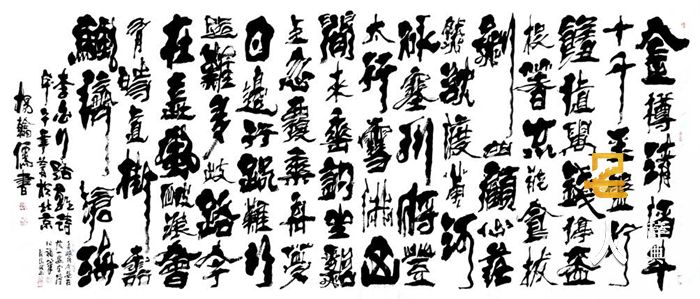 金樽清酒斗
十千玉盤珍
饈值萬錢停杯
投箸不能食拔
劍四顧心茫
然欲渡黃河
冰塞川將登
太行雪滿山
閒來垂釣坐
上忽復乘舟夢
日邊行路難行
路難多歧路今
在長風破浪會
有時直掛雲
帆濟滄海
李白行路難詩
年於北京
楊翰儒書